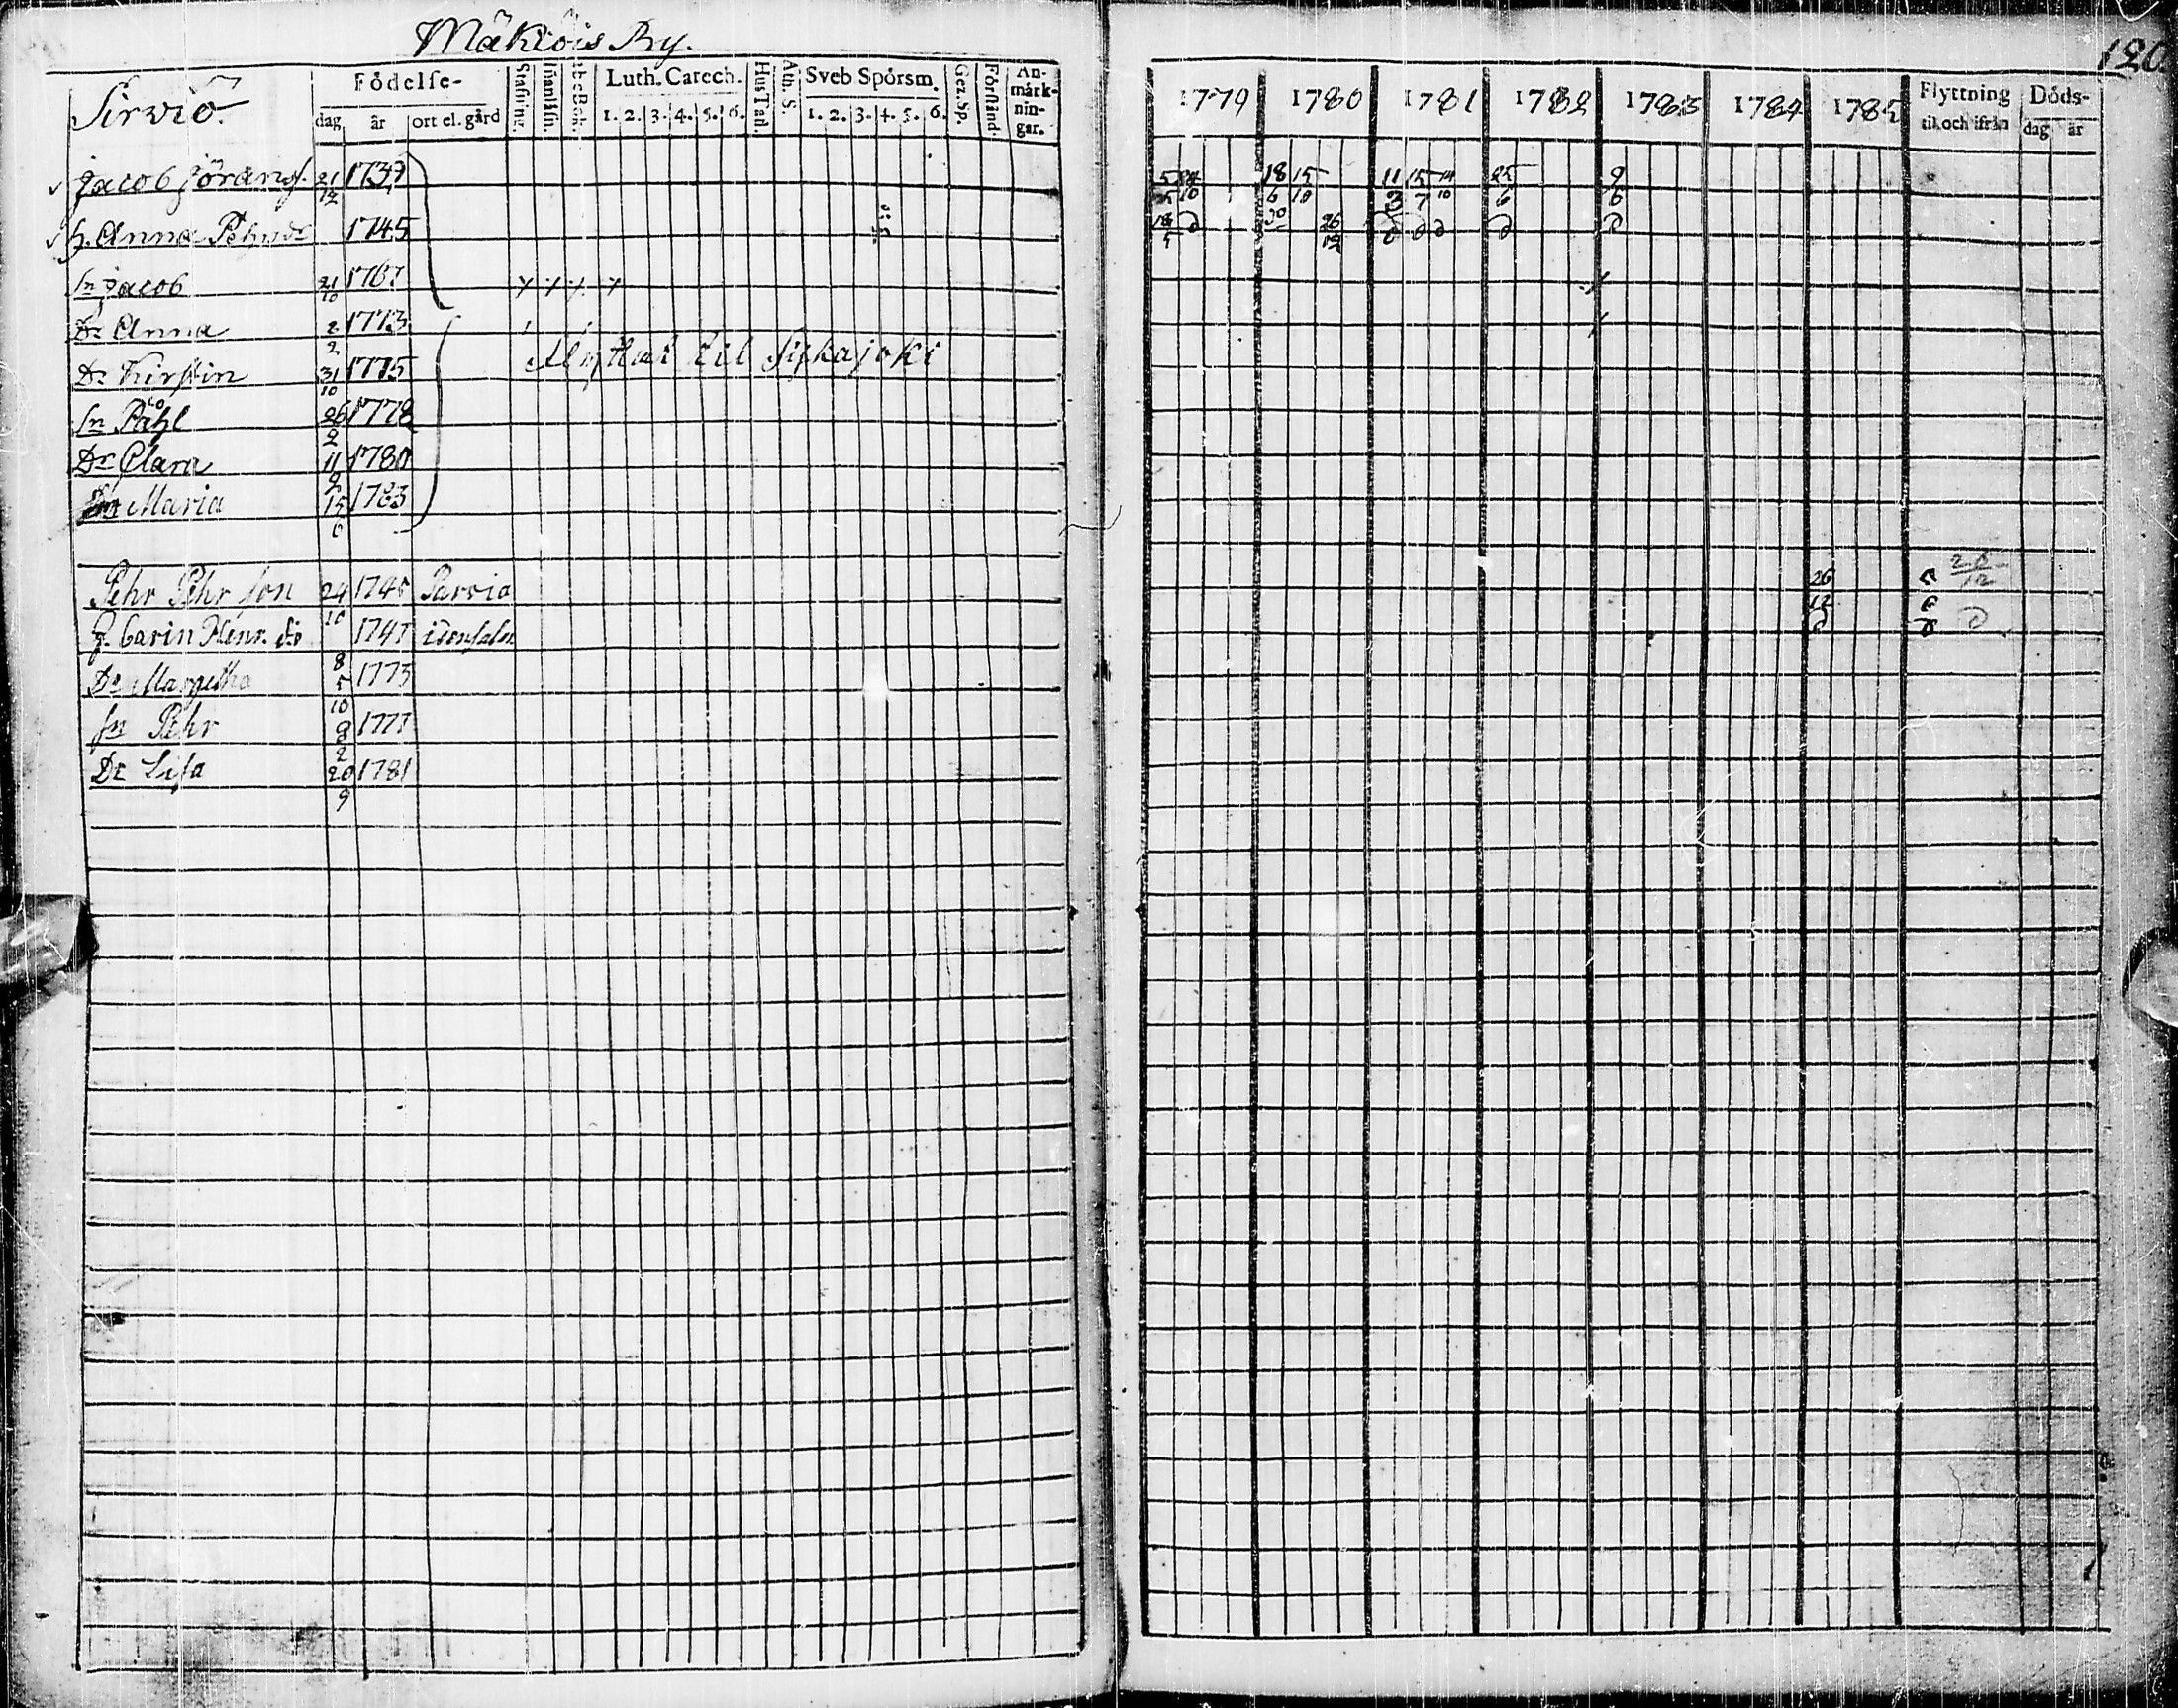 Mäkiöis By.
120.
Sirviö.
Födelse-
dag år ort el. gård
Stafning.
Innanläsn.
Luth. Catech.
1. 2. 3. 4. 5. 6.
Hus Tafl.
Ath. S.
Sveb Spörsm.
1. 2. 3. 4. 5. 6.
Gez. Sp.
Förstånd.
An-
märk-
nin-
gar.
1779 1780 1781 1782 1783 1784 1785
Flyttning
til och ifrån
Döds-
dag år
Jacob Jörans. 21/12 1739 5 18 15 11 15 14 25 9
25 10 6 10 3 7 10 6 6
h. Anna Pehrsdr 1745
Sn Jacob 21/10 1767
Dr Anna 2/2 1773
Flyttat til Sijkajoki
Dr Kirstin 31/10 1775
Sn Påhl 26/2 1778
Dr Clara 11/2 1780
Dr Maria 15/6 1783
Pehr Pehrson 24/10 1745 Parvia 26/12 26/12
h. Carin Henr. dr 1747 idensalm
Dr Margetha 5/10 1773
Sn Pehr 1777
Dr Lisa 20/9 1781